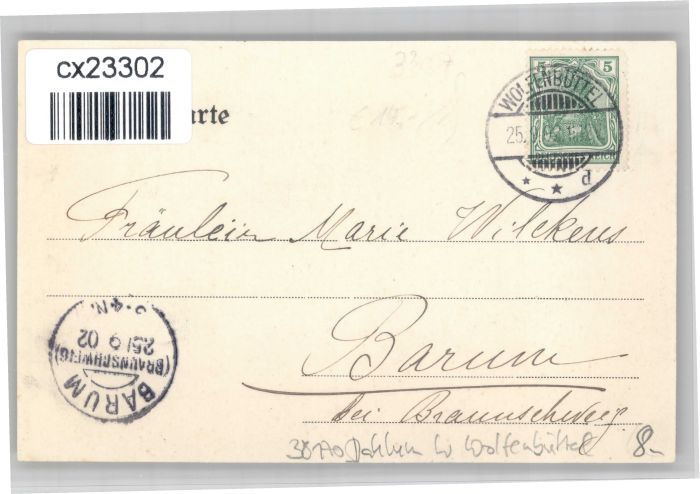 cx23302
arte
5 5
WOLFENBÜTTEL
25.
d
Fräulein Marie Wilckens
Barum
bei Braunschweig.
BARUM
(BRAUNSCHWEIG)
25/9 02
3-4N.
38170 Dahlum b/ Wolfenbüttel 8.-